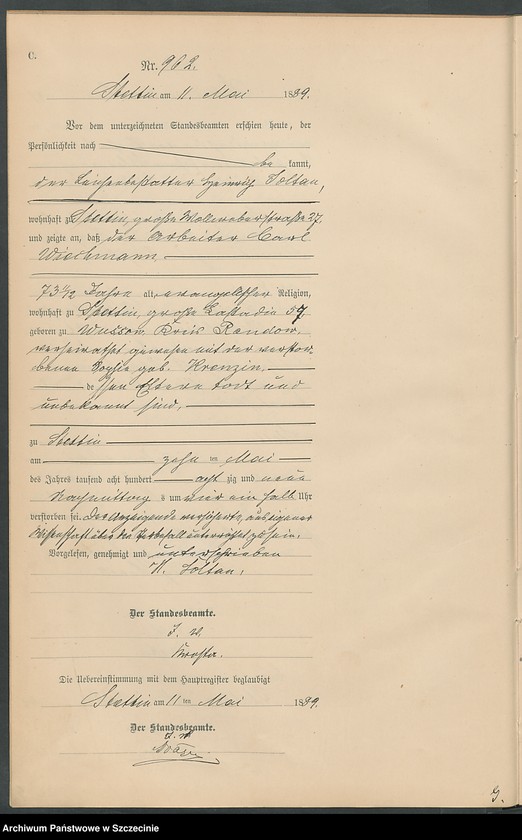 C.
Nr. 962.
Stettin am 11. Mai 1889.
Vor dem unterzeichneten Standesbeamten erschien heute, der
Persönlichkeit nach
be kannt,
der Leichenbestatter Heinrich Soltau,
wohnhaft zu Stettin, große Wollweberstraße 27
und zeigte an, daß der Arbeiter Carl
Wiechmann,
73 Jahre alt, evangelischer Religion,
wohnhaft zu Stettin, große Lastadie 57
geboren zu Wussow, Kreis Randow,
verheirathet gewesen mit der verstor-
benen Sophie geb. Krenzin,
dessen Eltern todt und
unbekannt sind,
zu Stettin
am zehn ten Mai
des Jahres tausend acht hundert acht zig und neun
Nachmittags um vier ein halb Uhr
verstorben sei. Der Anzeigende versicherte, aus eigener
Wissenschaft über den Sterbefall unterrichtet zu sein.
Vorgelesen, genehmigt und unterschrieben
H. Soltau.
Der Standesbeamte.
J. V.
Die Uebereinstimmung mit dem Hauptregister beglaubigt
Stettin am 11 ten Mai 1889.
Der Standesbeamte.
J. V.
Archiwum Państwowe w Szczecinie